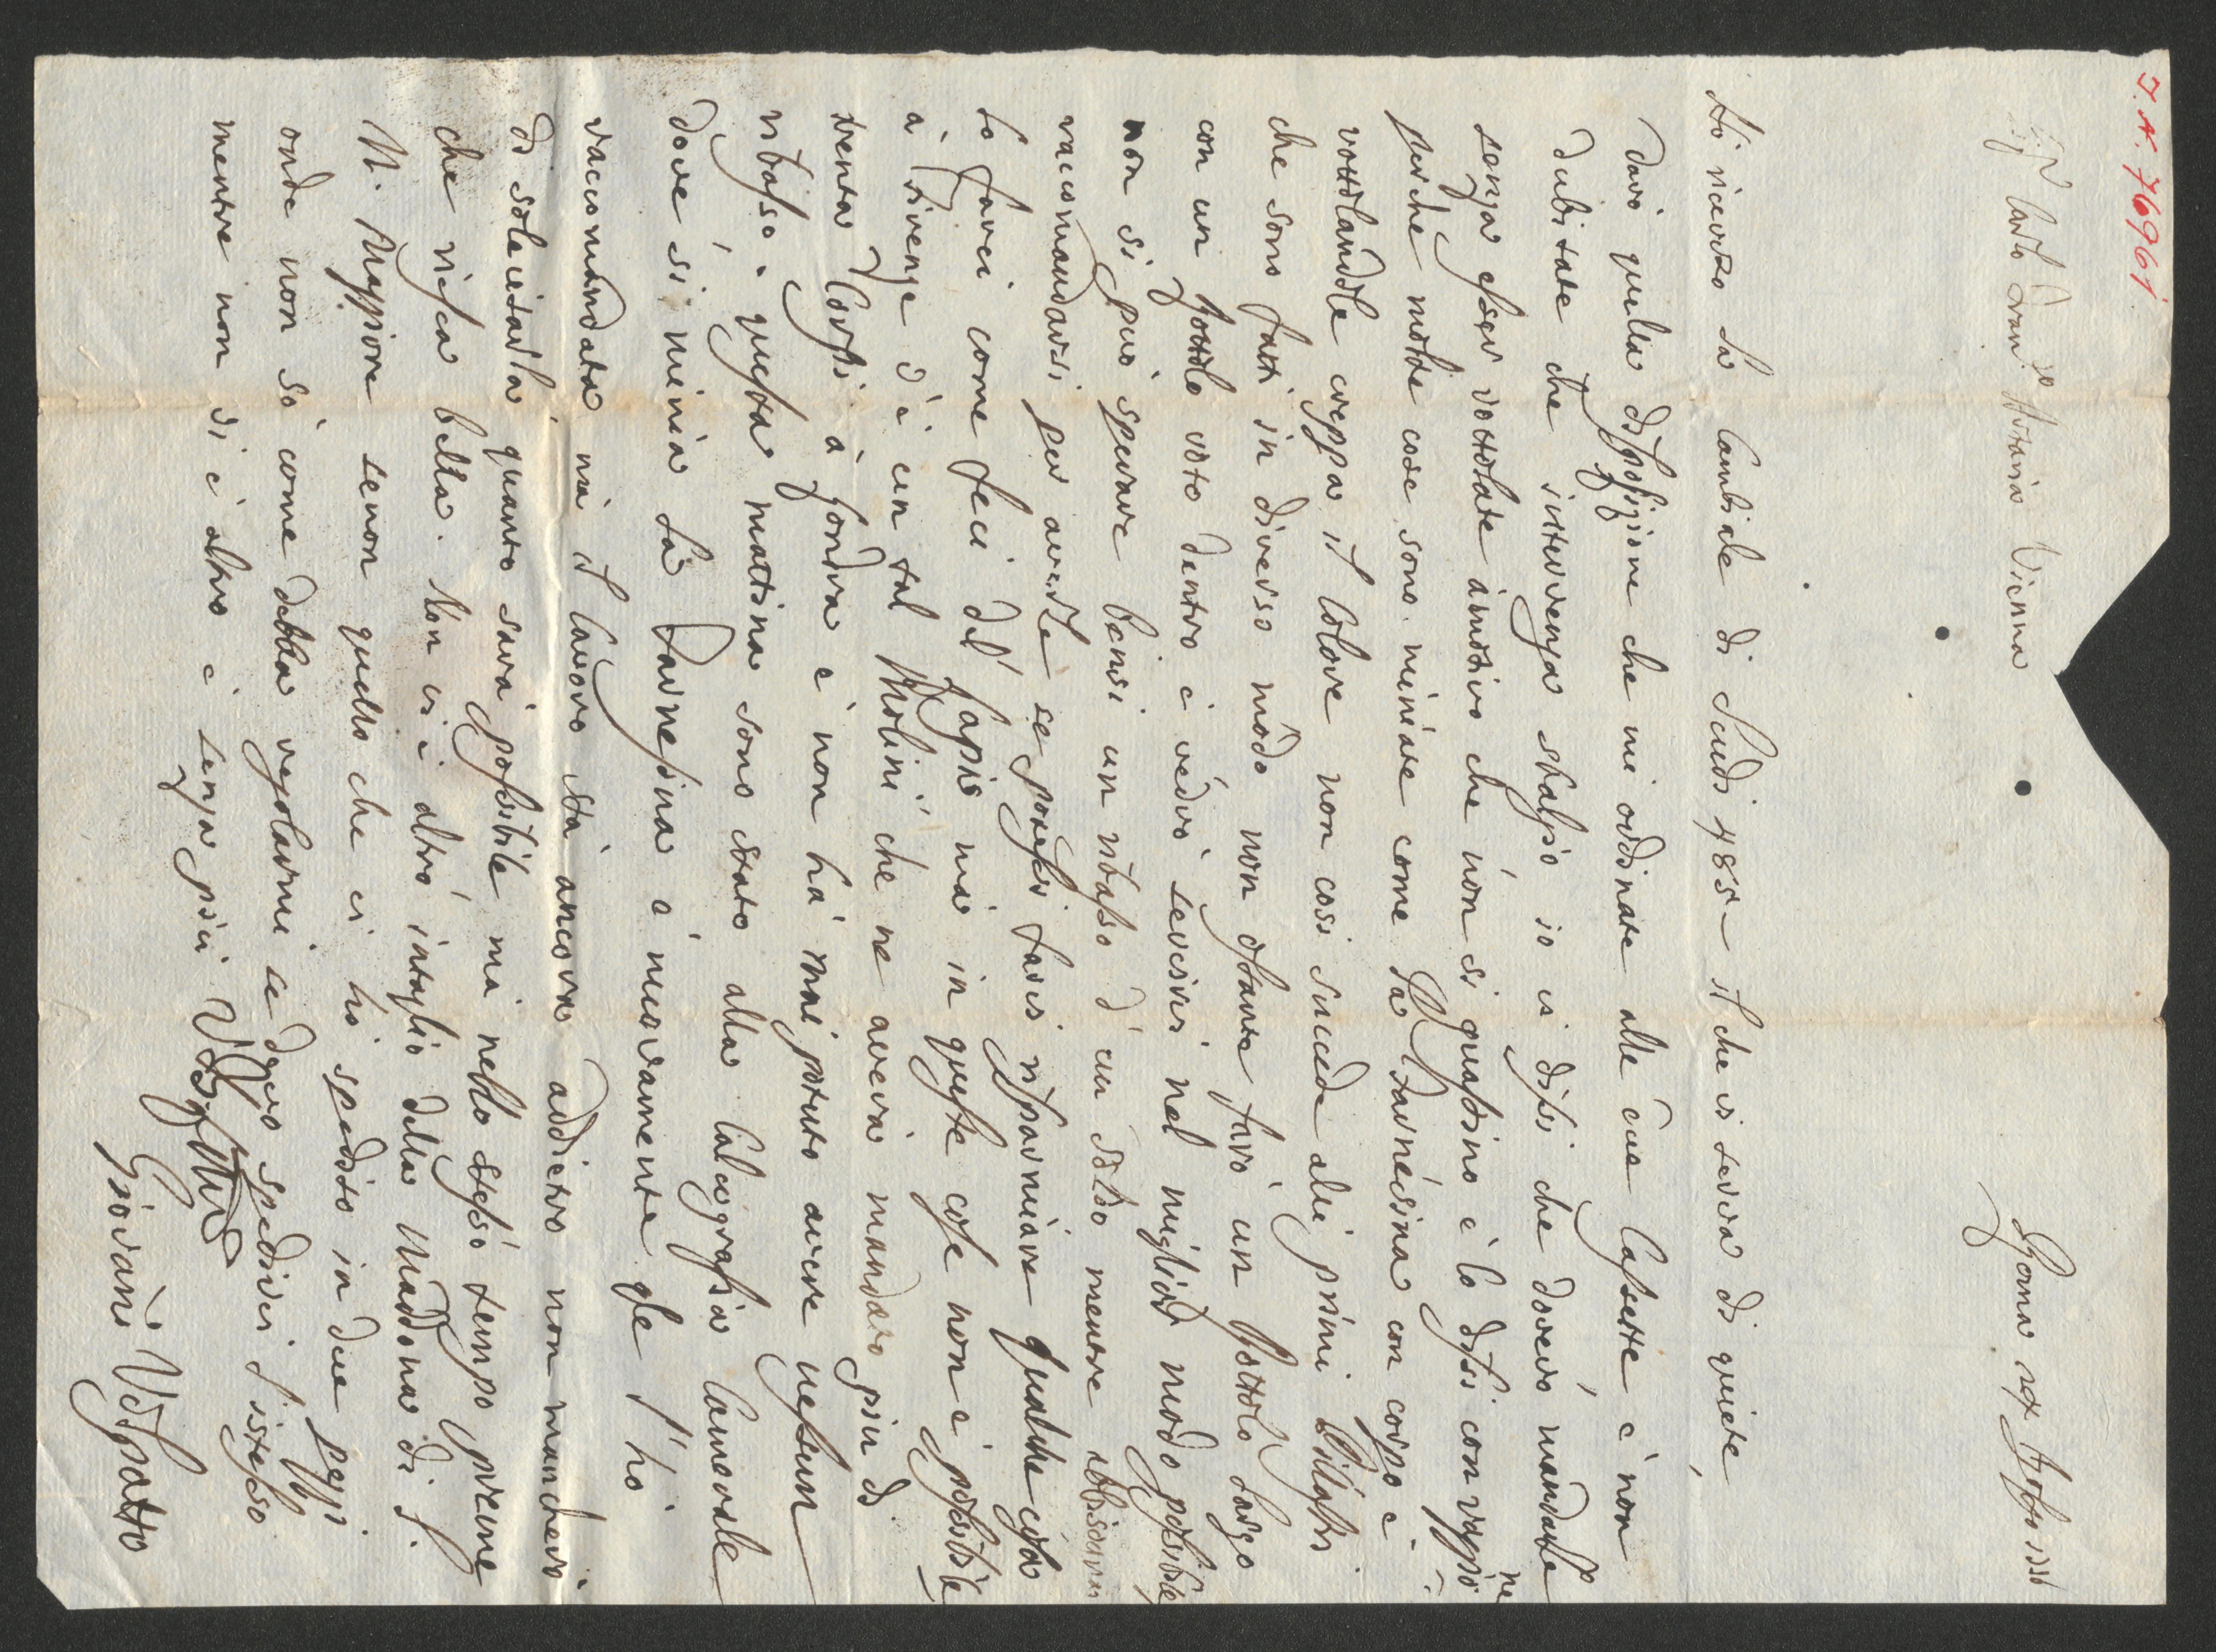 I. N. 76961
Sig.r Carlo Artaria Vienna
Roma 24 8bre 1781
Hò ricevuto la Cambiale di Scudi 485 il che vi serva di quiete,
darò quella disposizione che mi ordinate alle due Cassette e non
dubitate che intervenga sbalpio io vi dissi che dovevo mandarle
senza esser rottolate à motivo che non si guastino e lo dissi con raggio:ne
perche molte cose sono miniate come la Farnesina con corpo e
rottolandole creppa il Colore non cosi succede alli primi Pilastri
che sono fatti in diverso modo non ostante farò un Rottolo largo
con un Rottolo voto dentro e vedrò servirvi nel miglior modo possibile
non si può sperare bensi un ribasso d'un soldo mentre abbisogna
raccomandarsi per averle se potessi farvi risparmiare qualche cosa
lo farei come feci del Lapis mà in queste cose non è possibile
à Firenze v'è un tal Molini che ne aveva mandato piu di
trenta Corpi à Londra e non há mai potuto avere nessun
ribasso. questa mattina sono stato alla Calcografia Camerale
dove si minia la Farnesina e nuovamente gle l'hò
raccomandata mà il lavoro stà ancora addietro non mancherò
di solecitarla quanto sarà possibile mà nello stesso tempo preme
che riesca bella. Non vi è altro intaglio della Madona di S.
M. Maggiore senon quello che vi hò spedito in due pezzi
onde non sò come debba regolarmi se devo spedirvi l'istesso
mentre non vi è altro e senza più
Giovani Volpatto